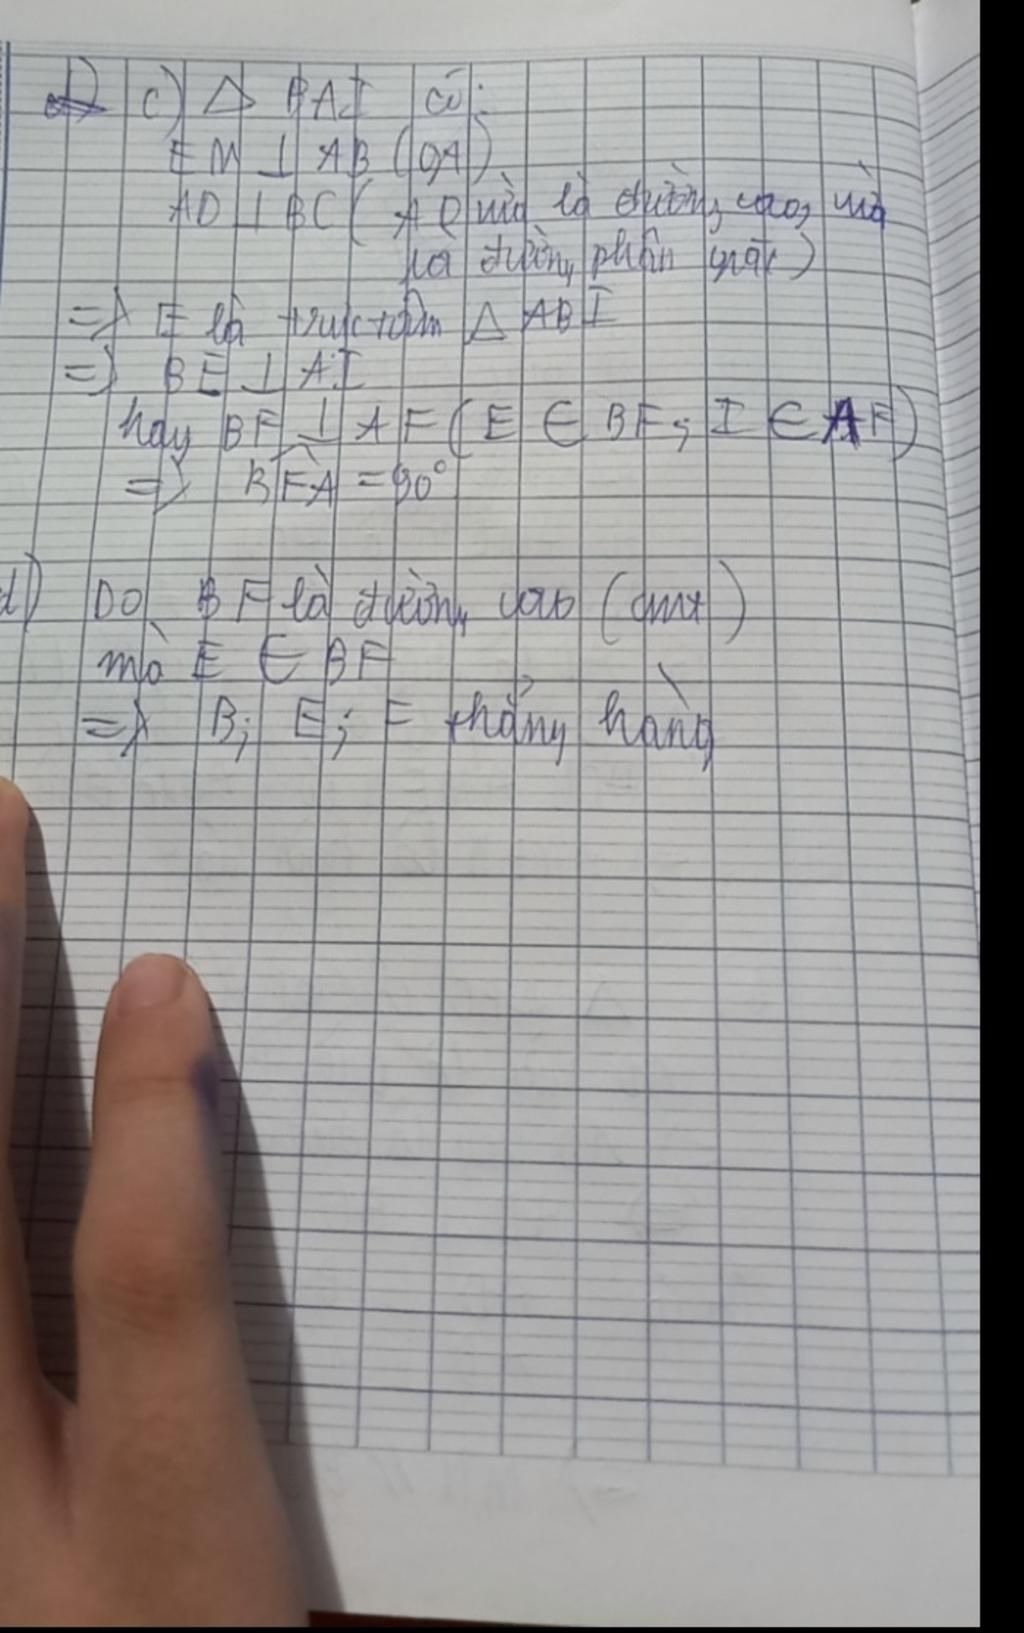 c) Δ BAI có:
EM ⊥ AB (gt)
AD ⊥ BC ( AD vừa là đường cao, vừa
là đường phân giác)
=> E là trực tâm Δ ABI
=> BE ⊥ AI
hay BF ⊥ AF (E ∈ BF; I ∈ AF)
=> BFA = 90°
d) Do BF là đường cao (cmt)
mà E ∈ BF
=> B; E; F thẳng hàng